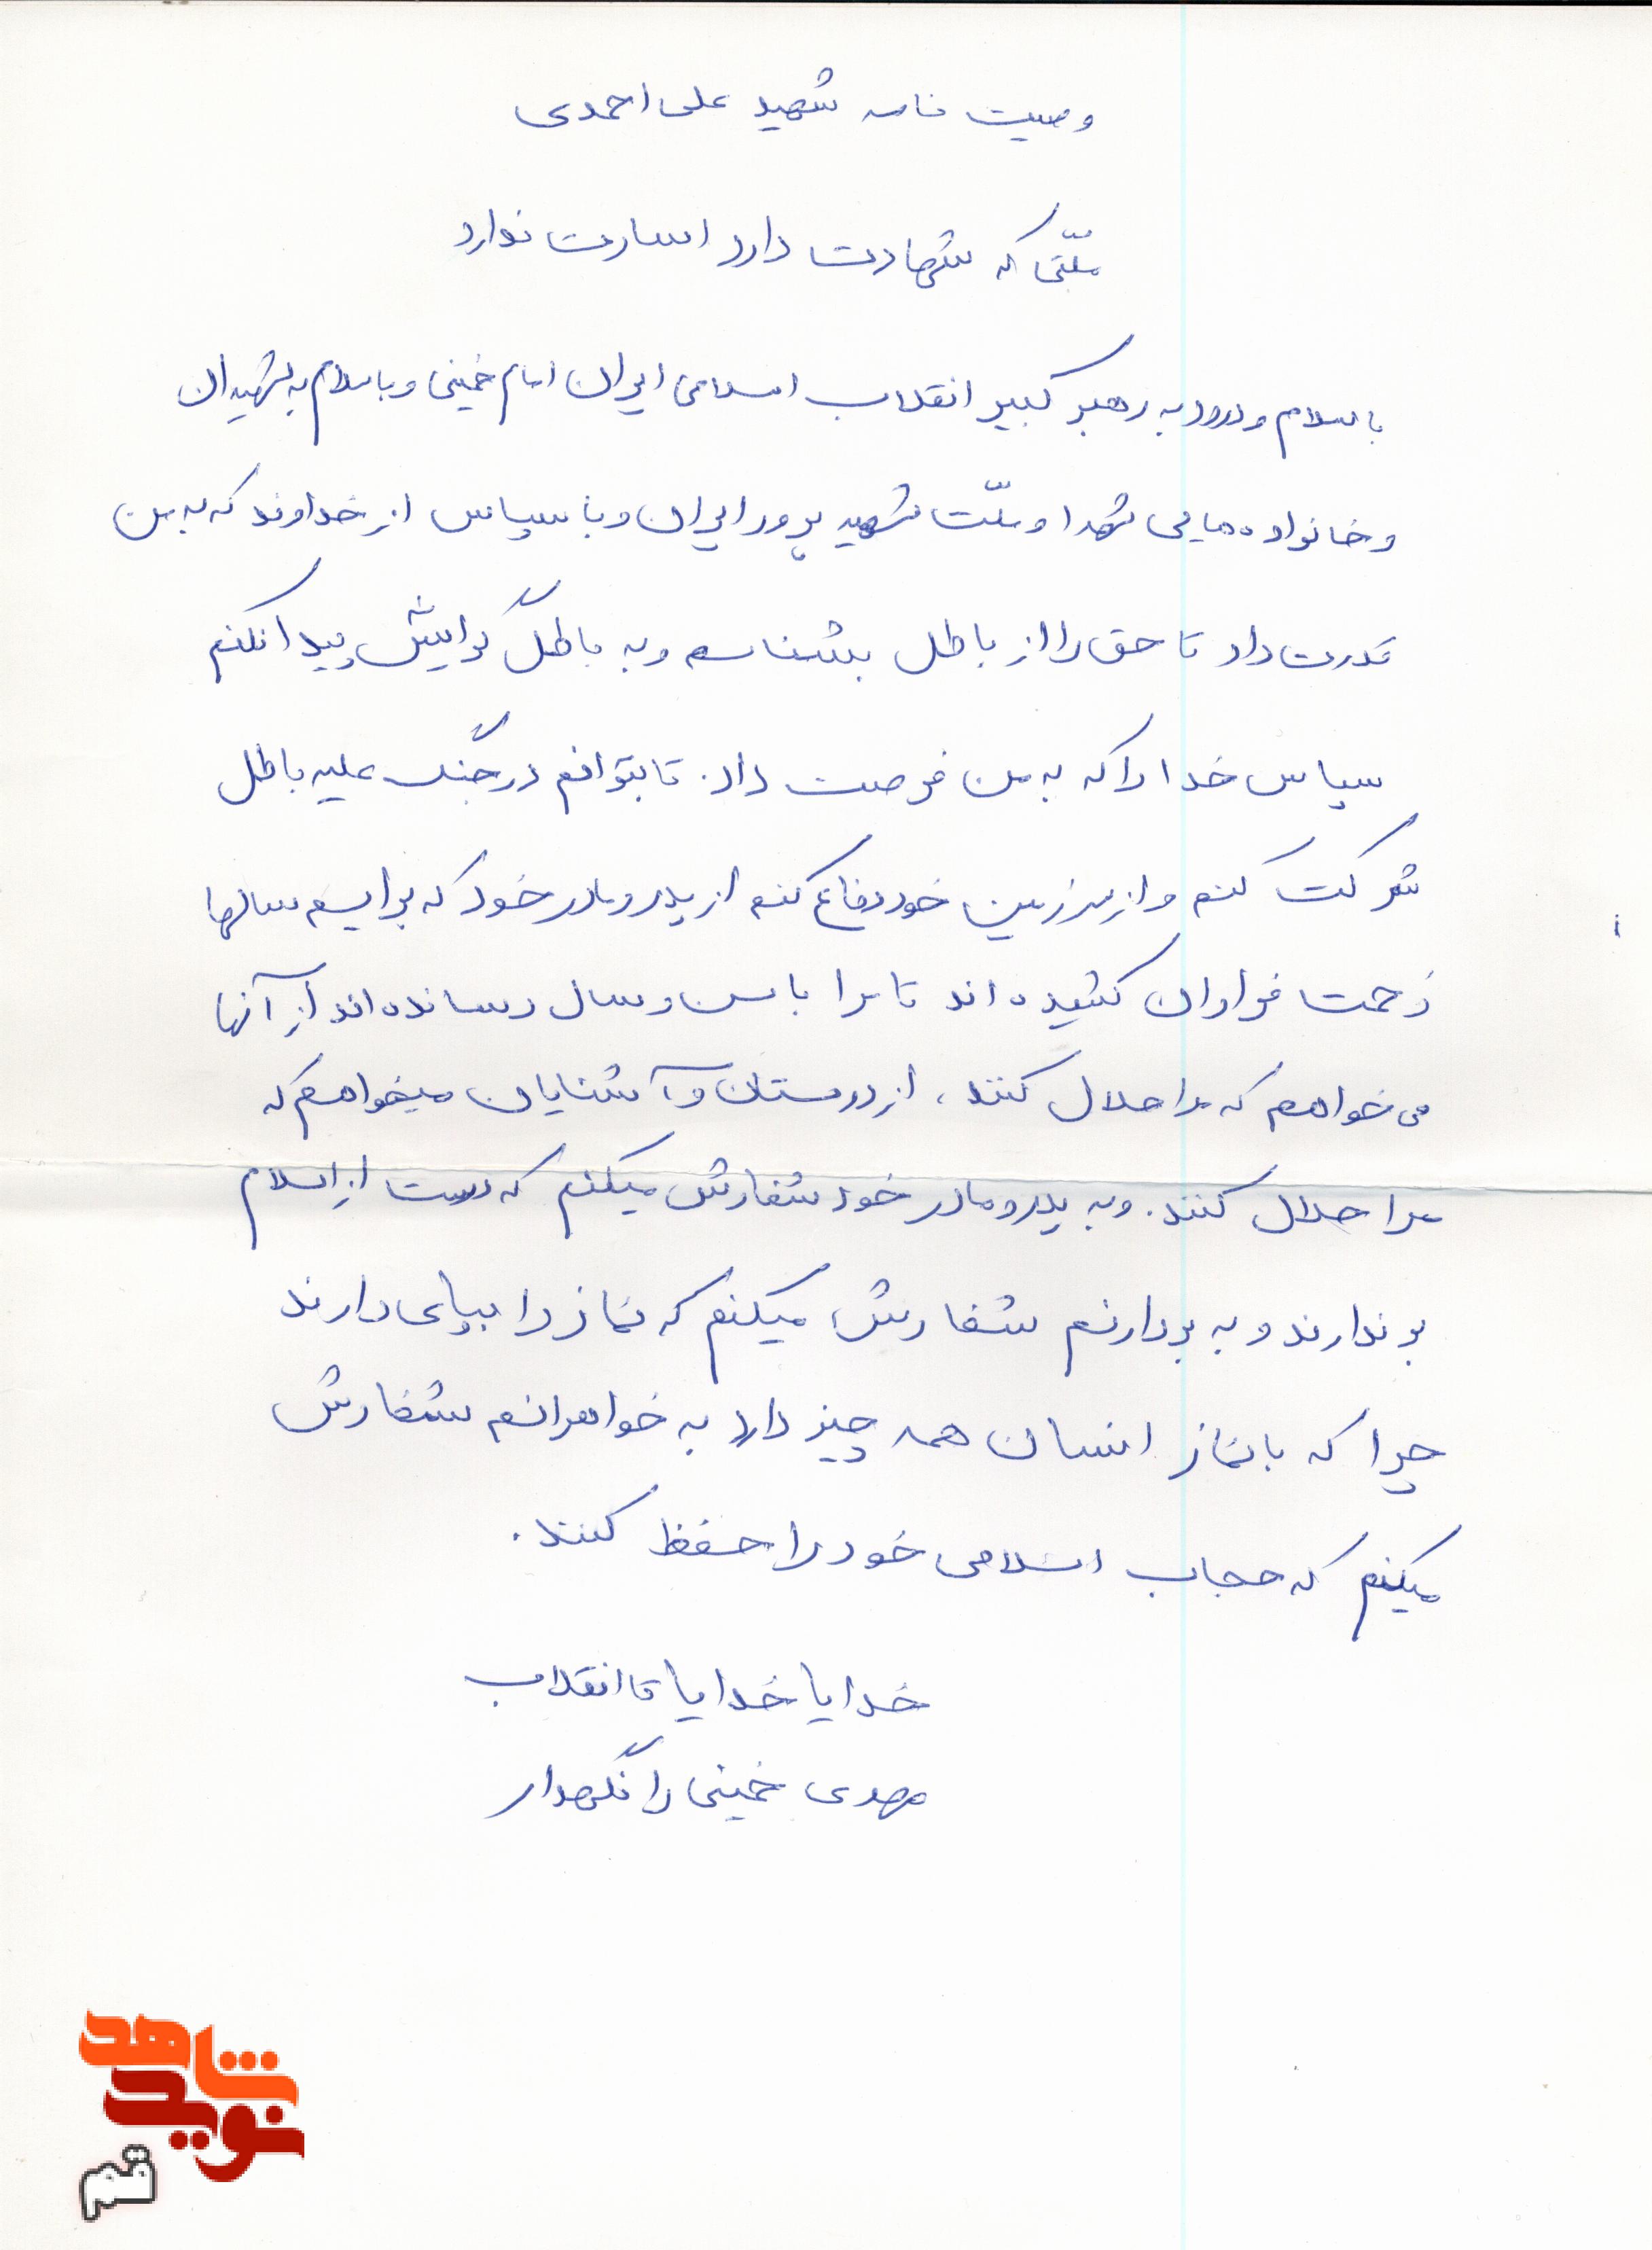 وصیت نامه شهید علی احمدی
ملّتی که شهادت دارد اسارت ندارد
با سلام و درود به رهبر کبیر انقلاب اسلامی ایران امام خمینی و با سلام به شهیدان
و خانواده هایی شهدا و ملّت شهید پرور ایران و با سپاس از خداوند که به من
قدرت داد تا حق را از باطل بشناسم و به باطل گرایش پیدا نکنم
سپاس خدا را که به من فرصت داد. تا بتوانم در جنگ علیه باطل
شرکت کنم و از سرزمین خود دفاع کنم از پدر و مادر خود که برایم سالها
زحمت فراوان کشیده اند تا مرا با سن و سال رسانده اند از آنها
می خواهم که مرا حلال کنند، از دوستان و آشنایان میخواهم که
مرا حلال کنند. و به پدر و مادر خود سفارش میکنم که دست از اسلام
بر ندارند و به برادرانم سفارش میکنم که نماز را بپای دارند
چرا که با نماز انسان همه چیز دارد به خواهرانم سفارش
میکنم که حجاب اسلامی خود را حفظ کنند.
خدایا خدایا تا انقلاب
مهدی خمینی را نگهدار
شاهد
نوید
قم